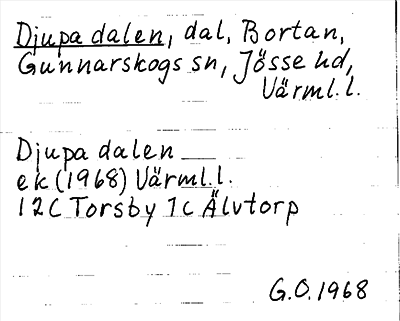 Djupa dalen, dal, Bortan,
Gunnarskogs sn, Jösse hd,
Värml. l.
Djupa dalen
ek (1968) Värml. l.
12C Torsby 7c Älvtorp
G.O. 1968